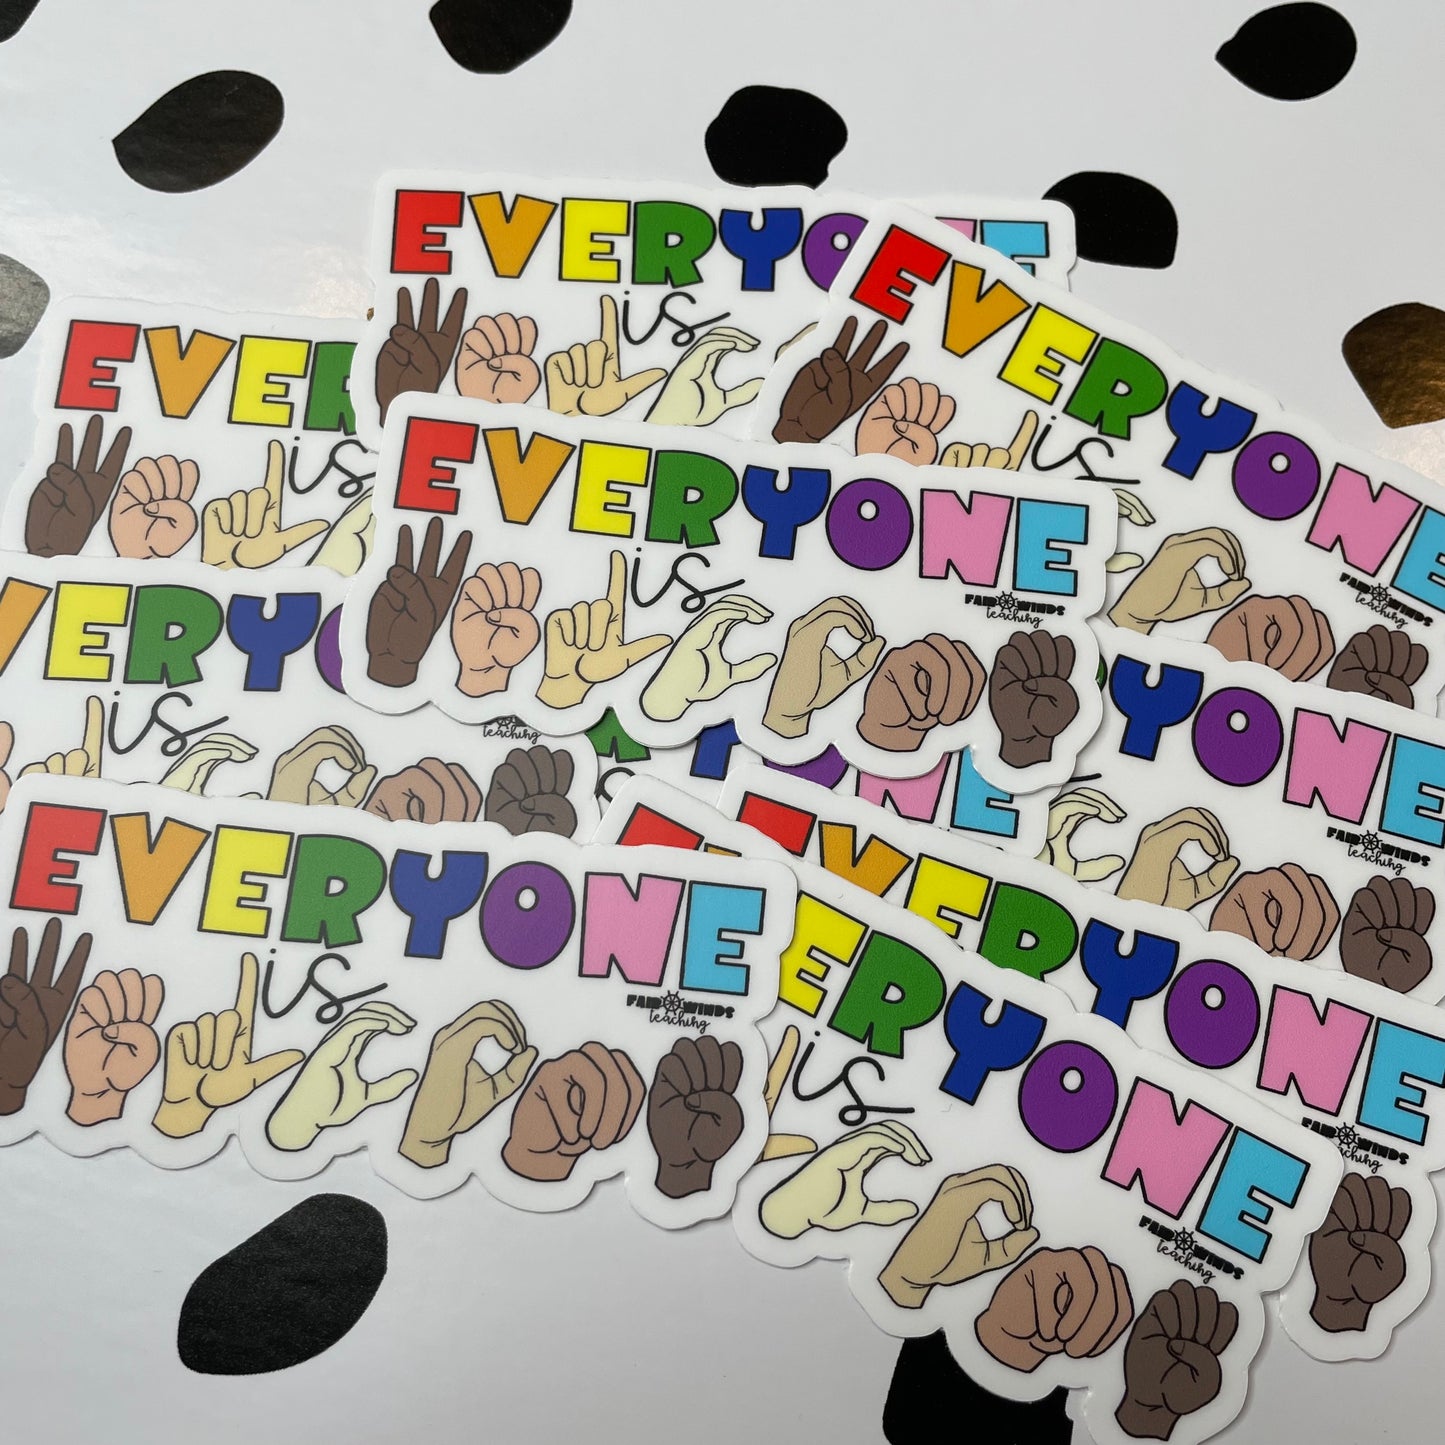 EVERYONE
is
EVERYONE
is
FAIR WINDS
teaching
EVER
is
EVERYONE
is
FAIR WINDS
teaching
VERYO
is
teaching
YONE
YONE
FAIR WINDS
teaching
EVERYONE
is
FAIR WINDS
teaching
EVERYONE
FAIR WINDS
teaching
ERYONE
is
FAIR WINDS
teaching